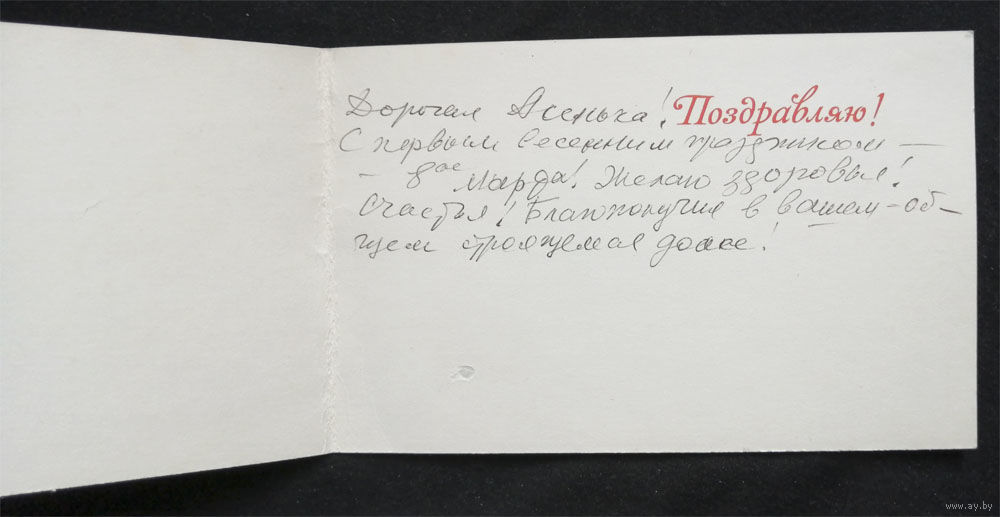 Дорогая Асенька! Поздравляю!
С первым весенним праздником —
– 8ое Марта! Желаю здоровья!
Счастья! Благополучия в вашем – об-
щем строящемся доме!
www.ay.by